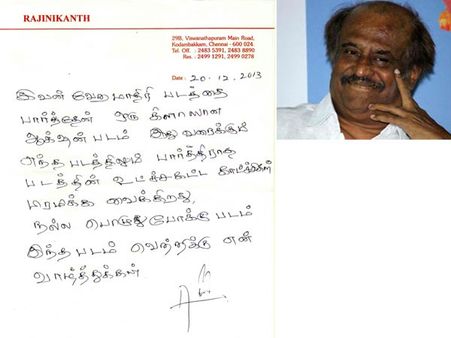 RAJINIKANTH
29B, Viswanathapuram Main Road,
Kodambakkam, Chennai - 600 024.
Tel. Off : 2483 5391, 2483 8890
Res. : 2499 1291, 2499 0278
Date : 20.12.2013
இவன் வேறமாதிரி படத்தை
பார்த்தேன் ஒரு கிளாஸான
ஆக்‌ஷன் படம் இது வரைக்கும்
எந்த படத்திலும் பார்த்திராத
படத்தின் உட்ச்சகட்ட காட்சிகள்
பிரமிக்க வைக்கிறது,
நல்ல பொழுதுபோக்கு படம்
இந்த படம் வெற்றிக்கு என்
வாழ்த்துக்கள்